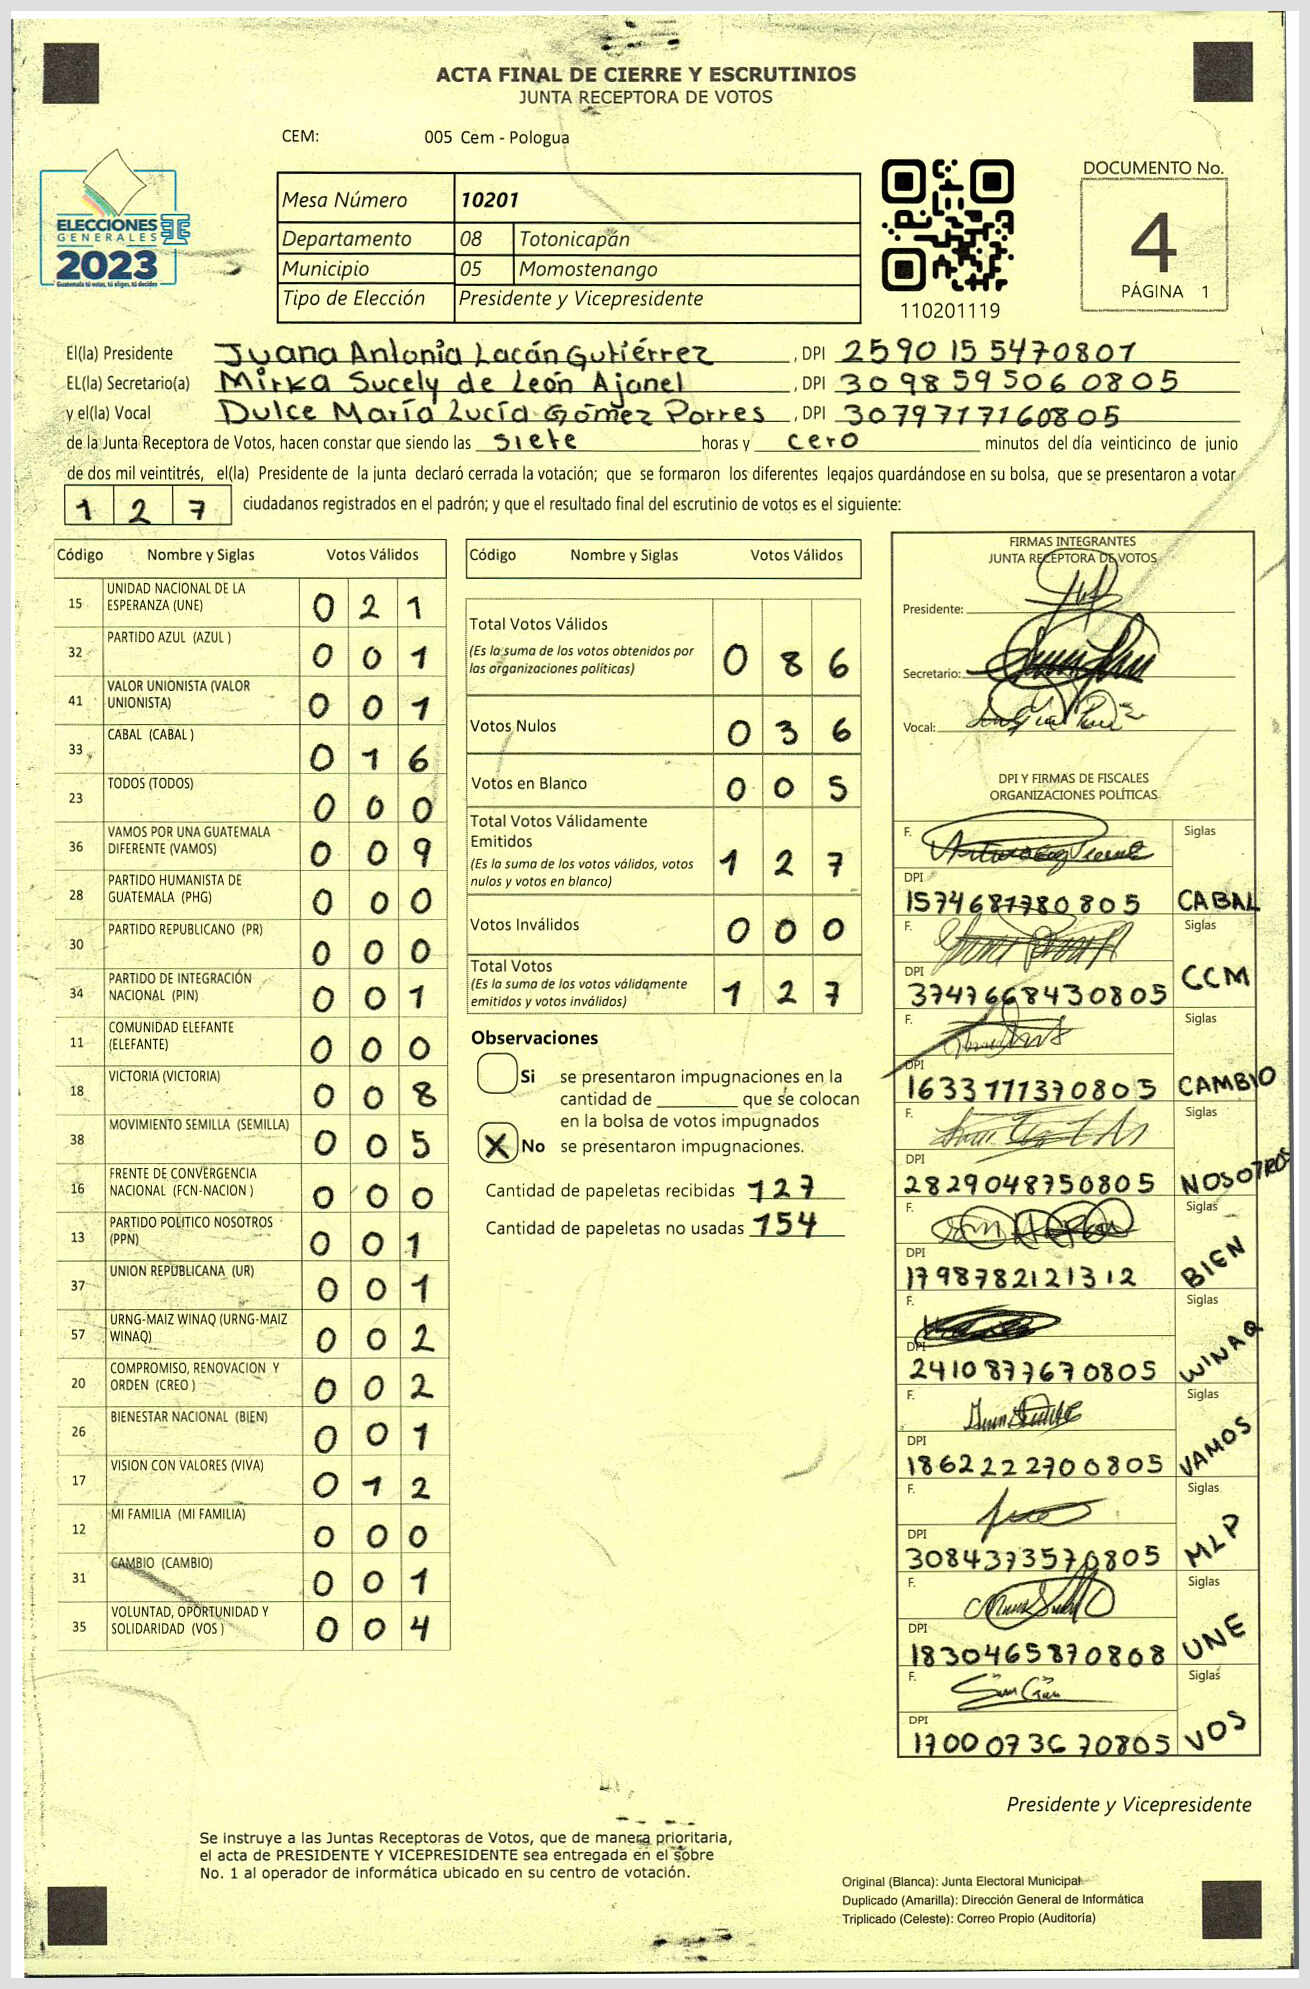 ACTA FINAL DE CIERRE Y ESCRUTINIOS
JUNTA RECEPTORA DE VOTOS
CEM: 005 Cem - Pologua
ELECCIONES
GENERALES
2023
Guatemala tú votas, tú eliges, tú decides
Mesa Número 10201
Departamento 08 Totonicapán
Municipio 05 Momostenango
Tipo de Elección Presidente y Vicepresidente
110201119
DOCUMENTO No.
4
PÁGINA 1
El(la) Presidente Juana Antonia Lacán Gutiérrez, DPI 2590 15 5470801
EL(la) Secretario(a) Mirka Sucely de León Ajanel, DPI 3098595060805
y el(la) Vocal Dulce María Lucía Gómez Porres, DPI 3079717160805
de la Junta Receptora de Votos, hacen constar que siendo las siete horas y cero minutos del día veinticinco de junio
de dos mil veintitrés, el(la) Presidente de la junta declaró cerrada la votación; que se formaron los diferentes legajos guardándose en su bolsa, que se presentaron a votar
1 2 7 ciudadanos registrados en el padrón; y que el resultado final del escrutinio de votos es el siguiente:
Código Nombre y Siglas Votos Válidos
15 UNIDAD NACIONAL DE LA ESPERANZA (UNE) 0 2 1
32 PARTIDO AZUL (AZUL ) 0 0 1
41 VALOR UNIONISTA (VALOR UNIONISTA) 0 0 1
33 CABAL (CABAL ) 0 1 6
23 TODOS (TODOS) 0 0 0
36 VAMOS POR UNA GUATEMALA DIFERENTE (VAMOS) 0 0 9
28 PARTIDO HUMANISTA DE GUATEMALA (PHG) 0 0 0
30 PARTIDO REPUBLICANO (PR) 0 0 0
34 PARTIDO DE INTEGRACIÓN NACIONAL (PIN) 0 0 1
11 COMUNIDAD ELEFANTE (ELEFANTE) 0 0 0
18 VICTORIA (VICTORIA) 0 0 8
38 MOVIMIENTO SEMILLA (SEMILLA) 0 0 5
16 FRENTE DE CONVERGENCIA NACIONAL (FCN-NACION ) 0 0 0
13 PARTIDO POLITICO NOSOTROS (PPN) 0 0 1
37 UNION REPUBLICANA (UR) 0 0 1
57 URNG-MAIZ WINAQ (URNG-MAIZ WINAQ) 0 0 2
20 COMPROMISO, RENOVACION Y ORDEN (CREO ) 0 0 2
26 BIENESTAR NACIONAL (BIEN) 0 0 1
17 VISION CON VALORES (VIVA) 0 1 2
12 MI FAMILIA (MI FAMILIA) 0 0 0
31 CAMBIO (CAMBIO) 0 0 1
35 VOLUNTAD, OPORTUNIDAD Y SOLIDARIDAD (VOS ) 0 0 4
Código Nombre y Siglas Votos Válidos
Total Votos Válidos
(Es la suma de los votos obtenidos por las organizaciones políticas) 0 8 6
Votos Nulos 0 3 6
Votos en Blanco 0 0 5
Total Votos Válidamente Emitidos
(Es la suma de los votos válidos, votos nulos y votos en blanco) 1 2 7
Votos Inválidos 0 0 0
Total Votos
(Es la suma de los votos válidamente emitidos y votos inválidos) 1 2 7
Observaciones
Si se presentaron impugnaciones en la
cantidad de ________ que se colocan
en la bolsa de votos impugnados
X No se presentaron impugnaciones.
Cantidad de papeletas recibidas 127
Cantidad de papeletas no usadas 154
FIRMAS INTEGRANTES
JUNTA RECEPTORA DE VOTOS
Presidente:
Secretario:
Vocal:
DPI Y FIRMAS DE FISCALES
ORGANIZACIONES POLÍTICAS
F. Siglas
DPI
1574681780805 CABAL
F. Siglas
DPI
3747668430805 CCM
F. Siglas
DPI
1633777370805 CAMBIO
F. Siglas
DPI
2829048750805 NOSOTROS
F. Siglas
DPI
1798782121312 BIEN
F. Siglas
DPI
2410877670805 WINAQ
F. Siglas
DPI
1862222700805 VAMOS
F. Siglas
DPI
3084373570805 MLP
F. Siglas
DPI
1830465870808 UNE
F. Siglas
DPI
1700073670805 VOS
Presidente y Vicepresidente
Se instruye a las Juntas Receptoras de Votos, que de manera prioritaria,
el acta de PRESIDENTE Y VICEPRESIDENTE sea entregada en el sobre
No. 1 al operador de informática ubicado en su centro de votación.
Original (Blanca): Junta Electoral Municipal
Duplicado (Amarilla): Dirección General de Informática
Triplicado (Celeste): Correo Propio (Auditoría)